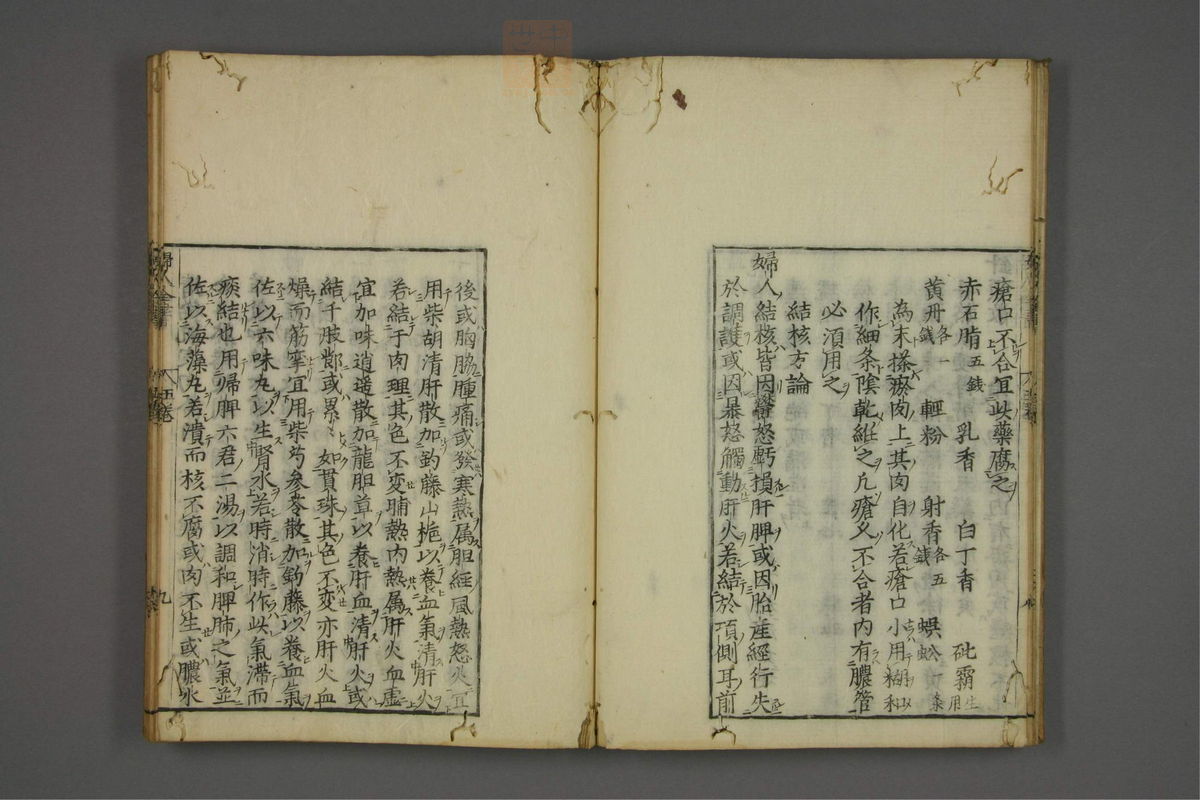 瘡口不合宜此藥腐之
赤石脂五錢 乳香 白丁香 砒霜生用
黄丹各一錢 輕粉 射香各五錢 蜈蚣一条
為末搽瘀肉上其肉自化若瘡口小用糊和
作細条陰乾紝之凡瘡久不合者内有膿管
必須用之
結核方論
婦人結核皆因欝怒虧損肝脾或因胎産經行失
於調護或因暴怒觸動肝火若結於頂側耳前
後或胸脇腫痛或發寒熱属胆經風熱怒火宜
用柴胡清肝散加釣藤山梔以養血氣清肝火
若結于肉理其色不変晡熱内熱属肝火血虚
宜加味逍遥散加龍胆草以養肝血清肝火或
結于肢節或累々如貫珠其色不変亦肝火血
燥而筋攣宜用柴芍參苓散加釣藤以養血氣
佐以六味丸以生腎水若時消時作此氣滞而
痰結也用帰脾六君二湯以調和脾肺之氣並
佐以海藻丸若潰而核不腐或肉不生或膿水
九